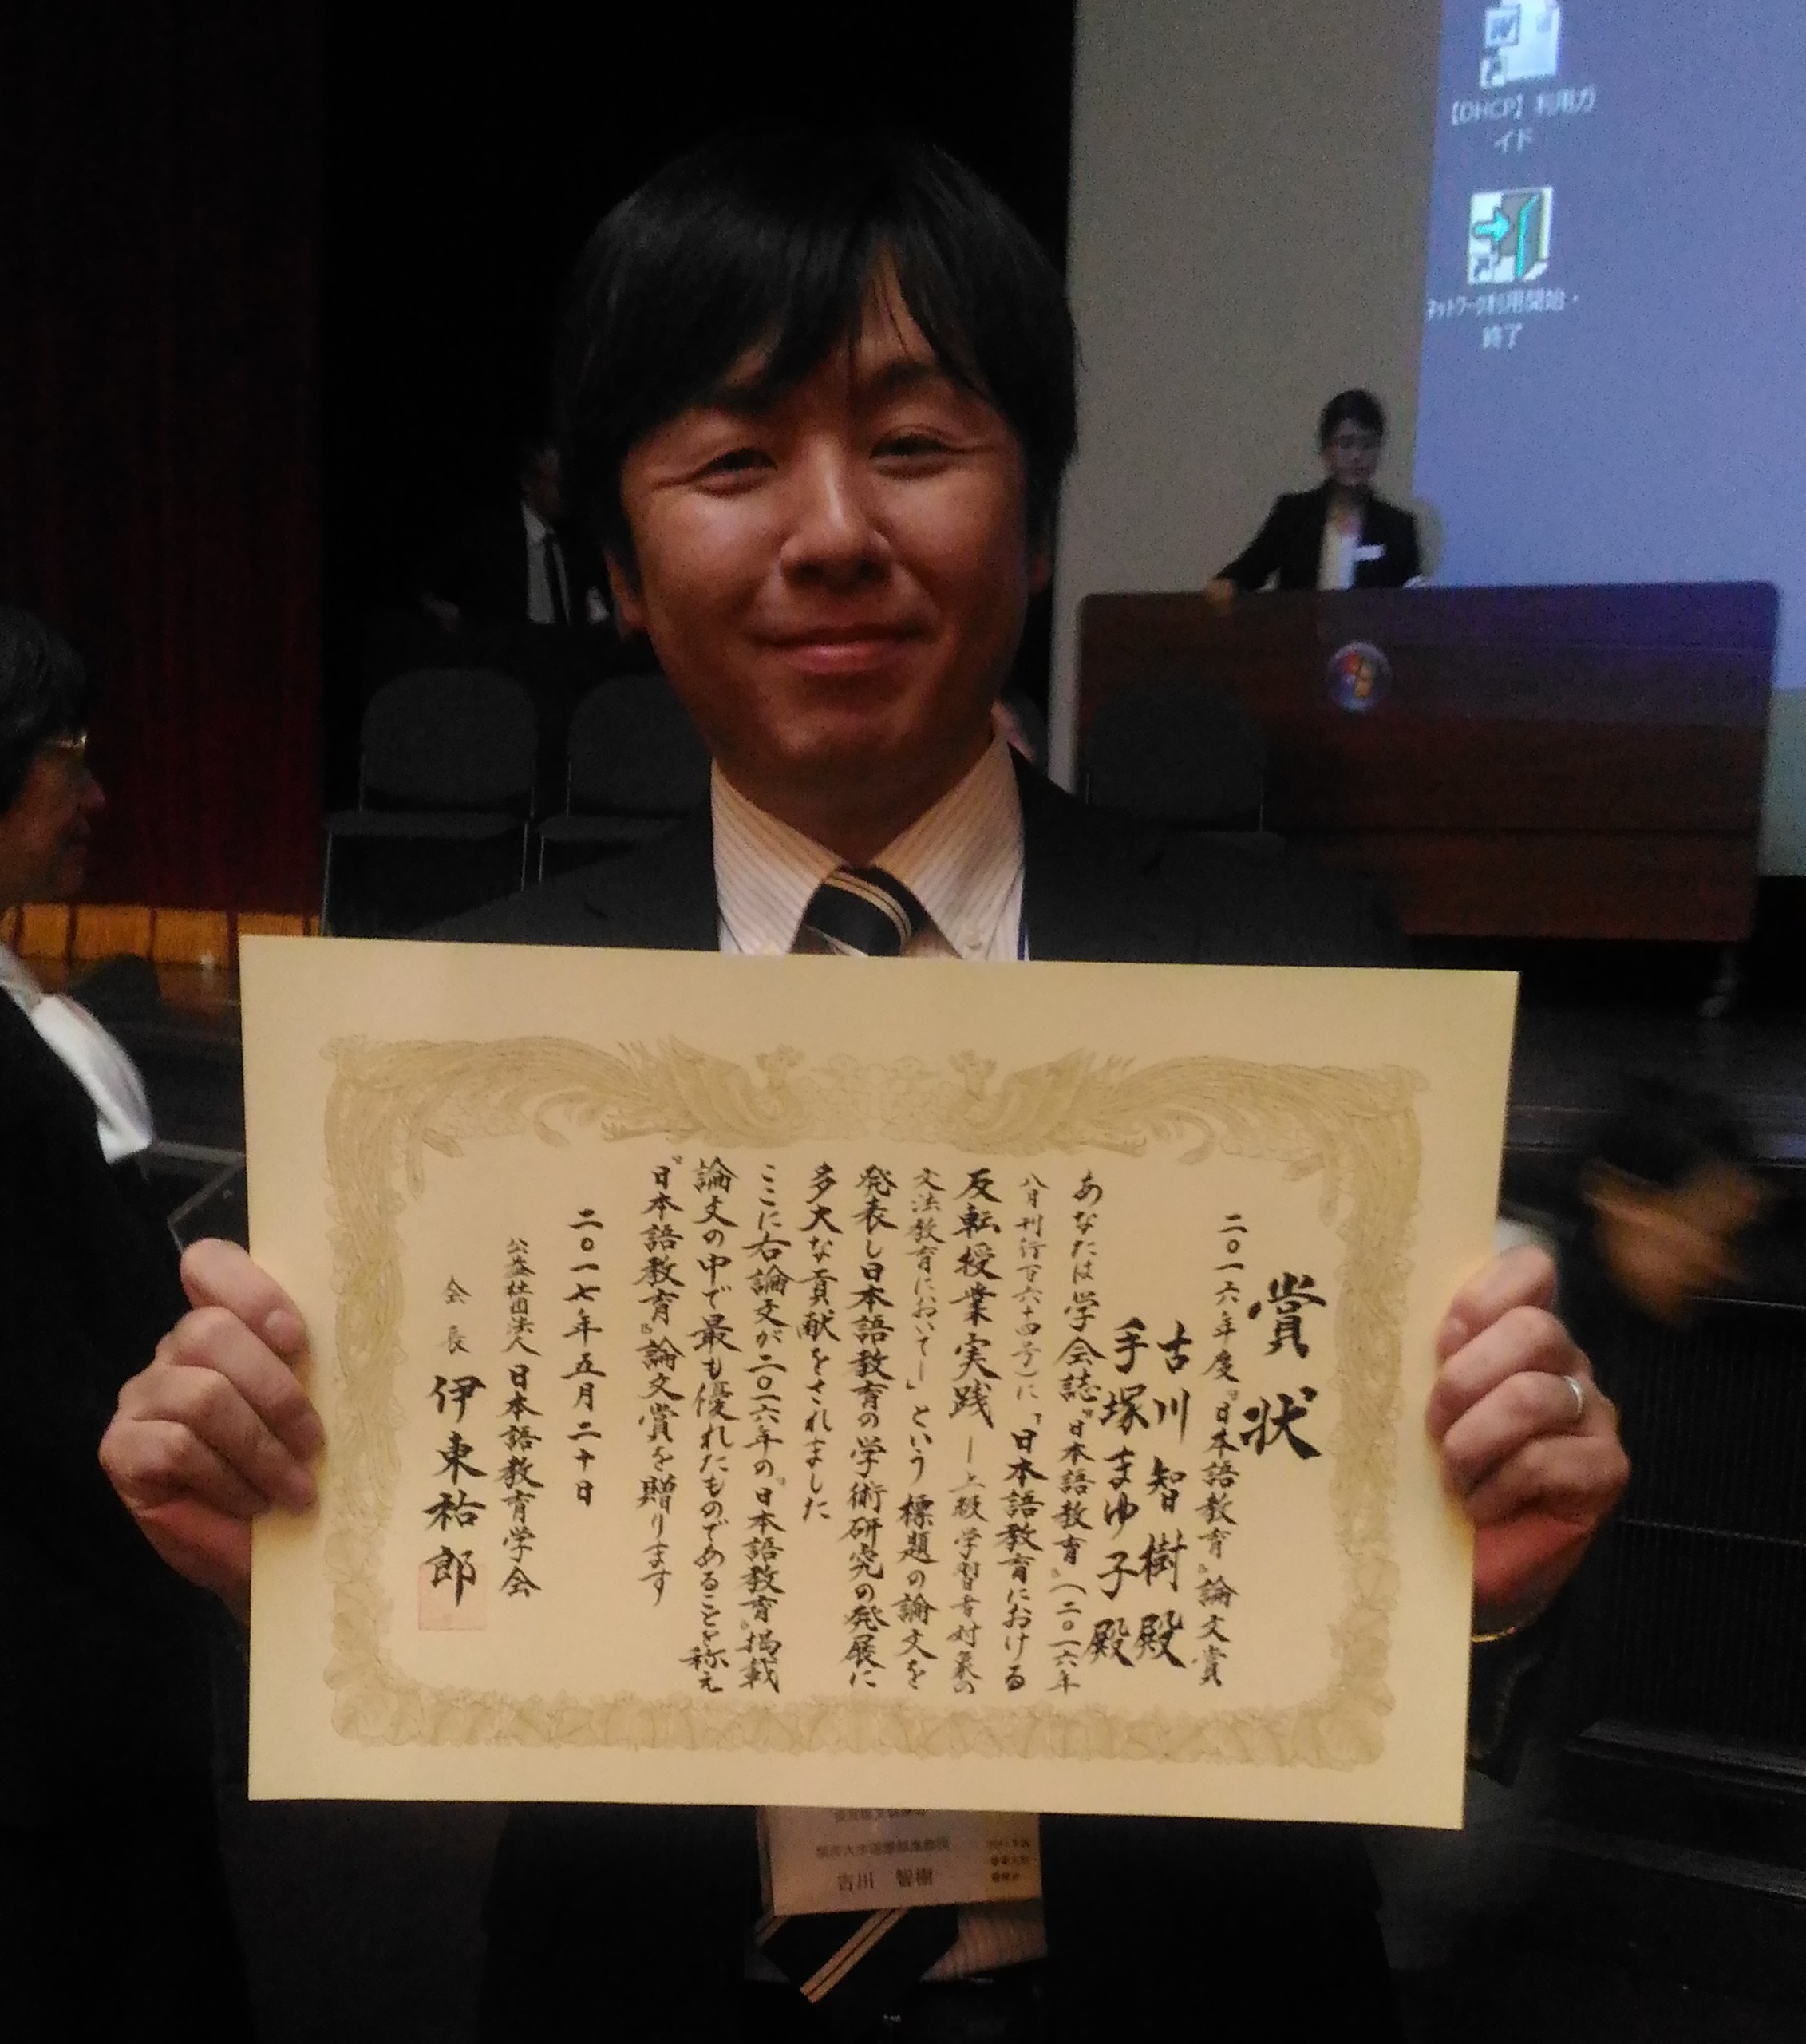 賞状
二〇一六年度『日本語教育』論文賞
古川智樹殿
手塚まゆ子殿
あなたは学会誌『日本語教育』(二〇一六年
八月刊行百六十四号)に「日本語教育における
反転授業実践―上級学習者対象の
文法教育において―」という標題の論文を
発表し日本語教育の学術研究の発展に
多大な貢献をされました
ここに右論文が二〇一六年の『日本語教育』掲載
論文の中で最も優れたものであることを称え
『日本語教育』論文賞を贈ります
二〇一七年五月二十日
公益社団法人 日本語教育学会
会長 伊東祐郎
【DHCP】利用ガ
イド
ネットワーク利用開始・
終了
古川 智樹